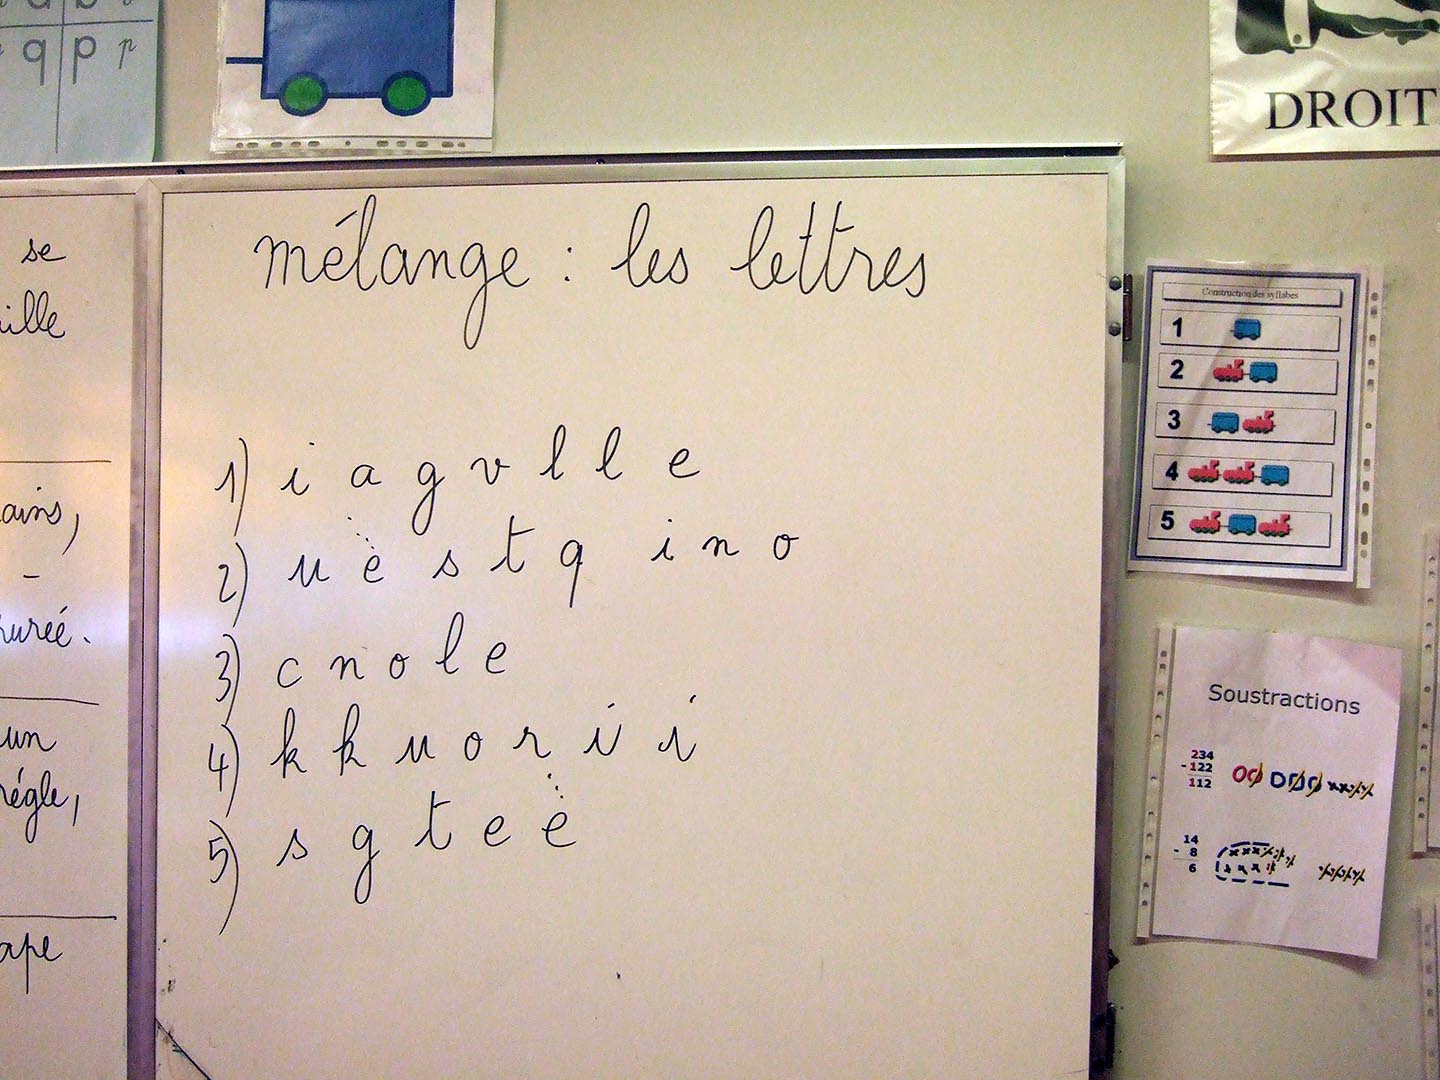 q p p
DROIT
mélange : les lettres
1) i a g v l l e
2) u ë s t q i n o
3) c n o l e
4) k k u o r i i
5) s g t e ë
se
ille
ains,
-
purée.
un
régle,
ape
Construction des syllabes
1
2
3
4
5
Soustractions
234
-122
112
14
- 8
6